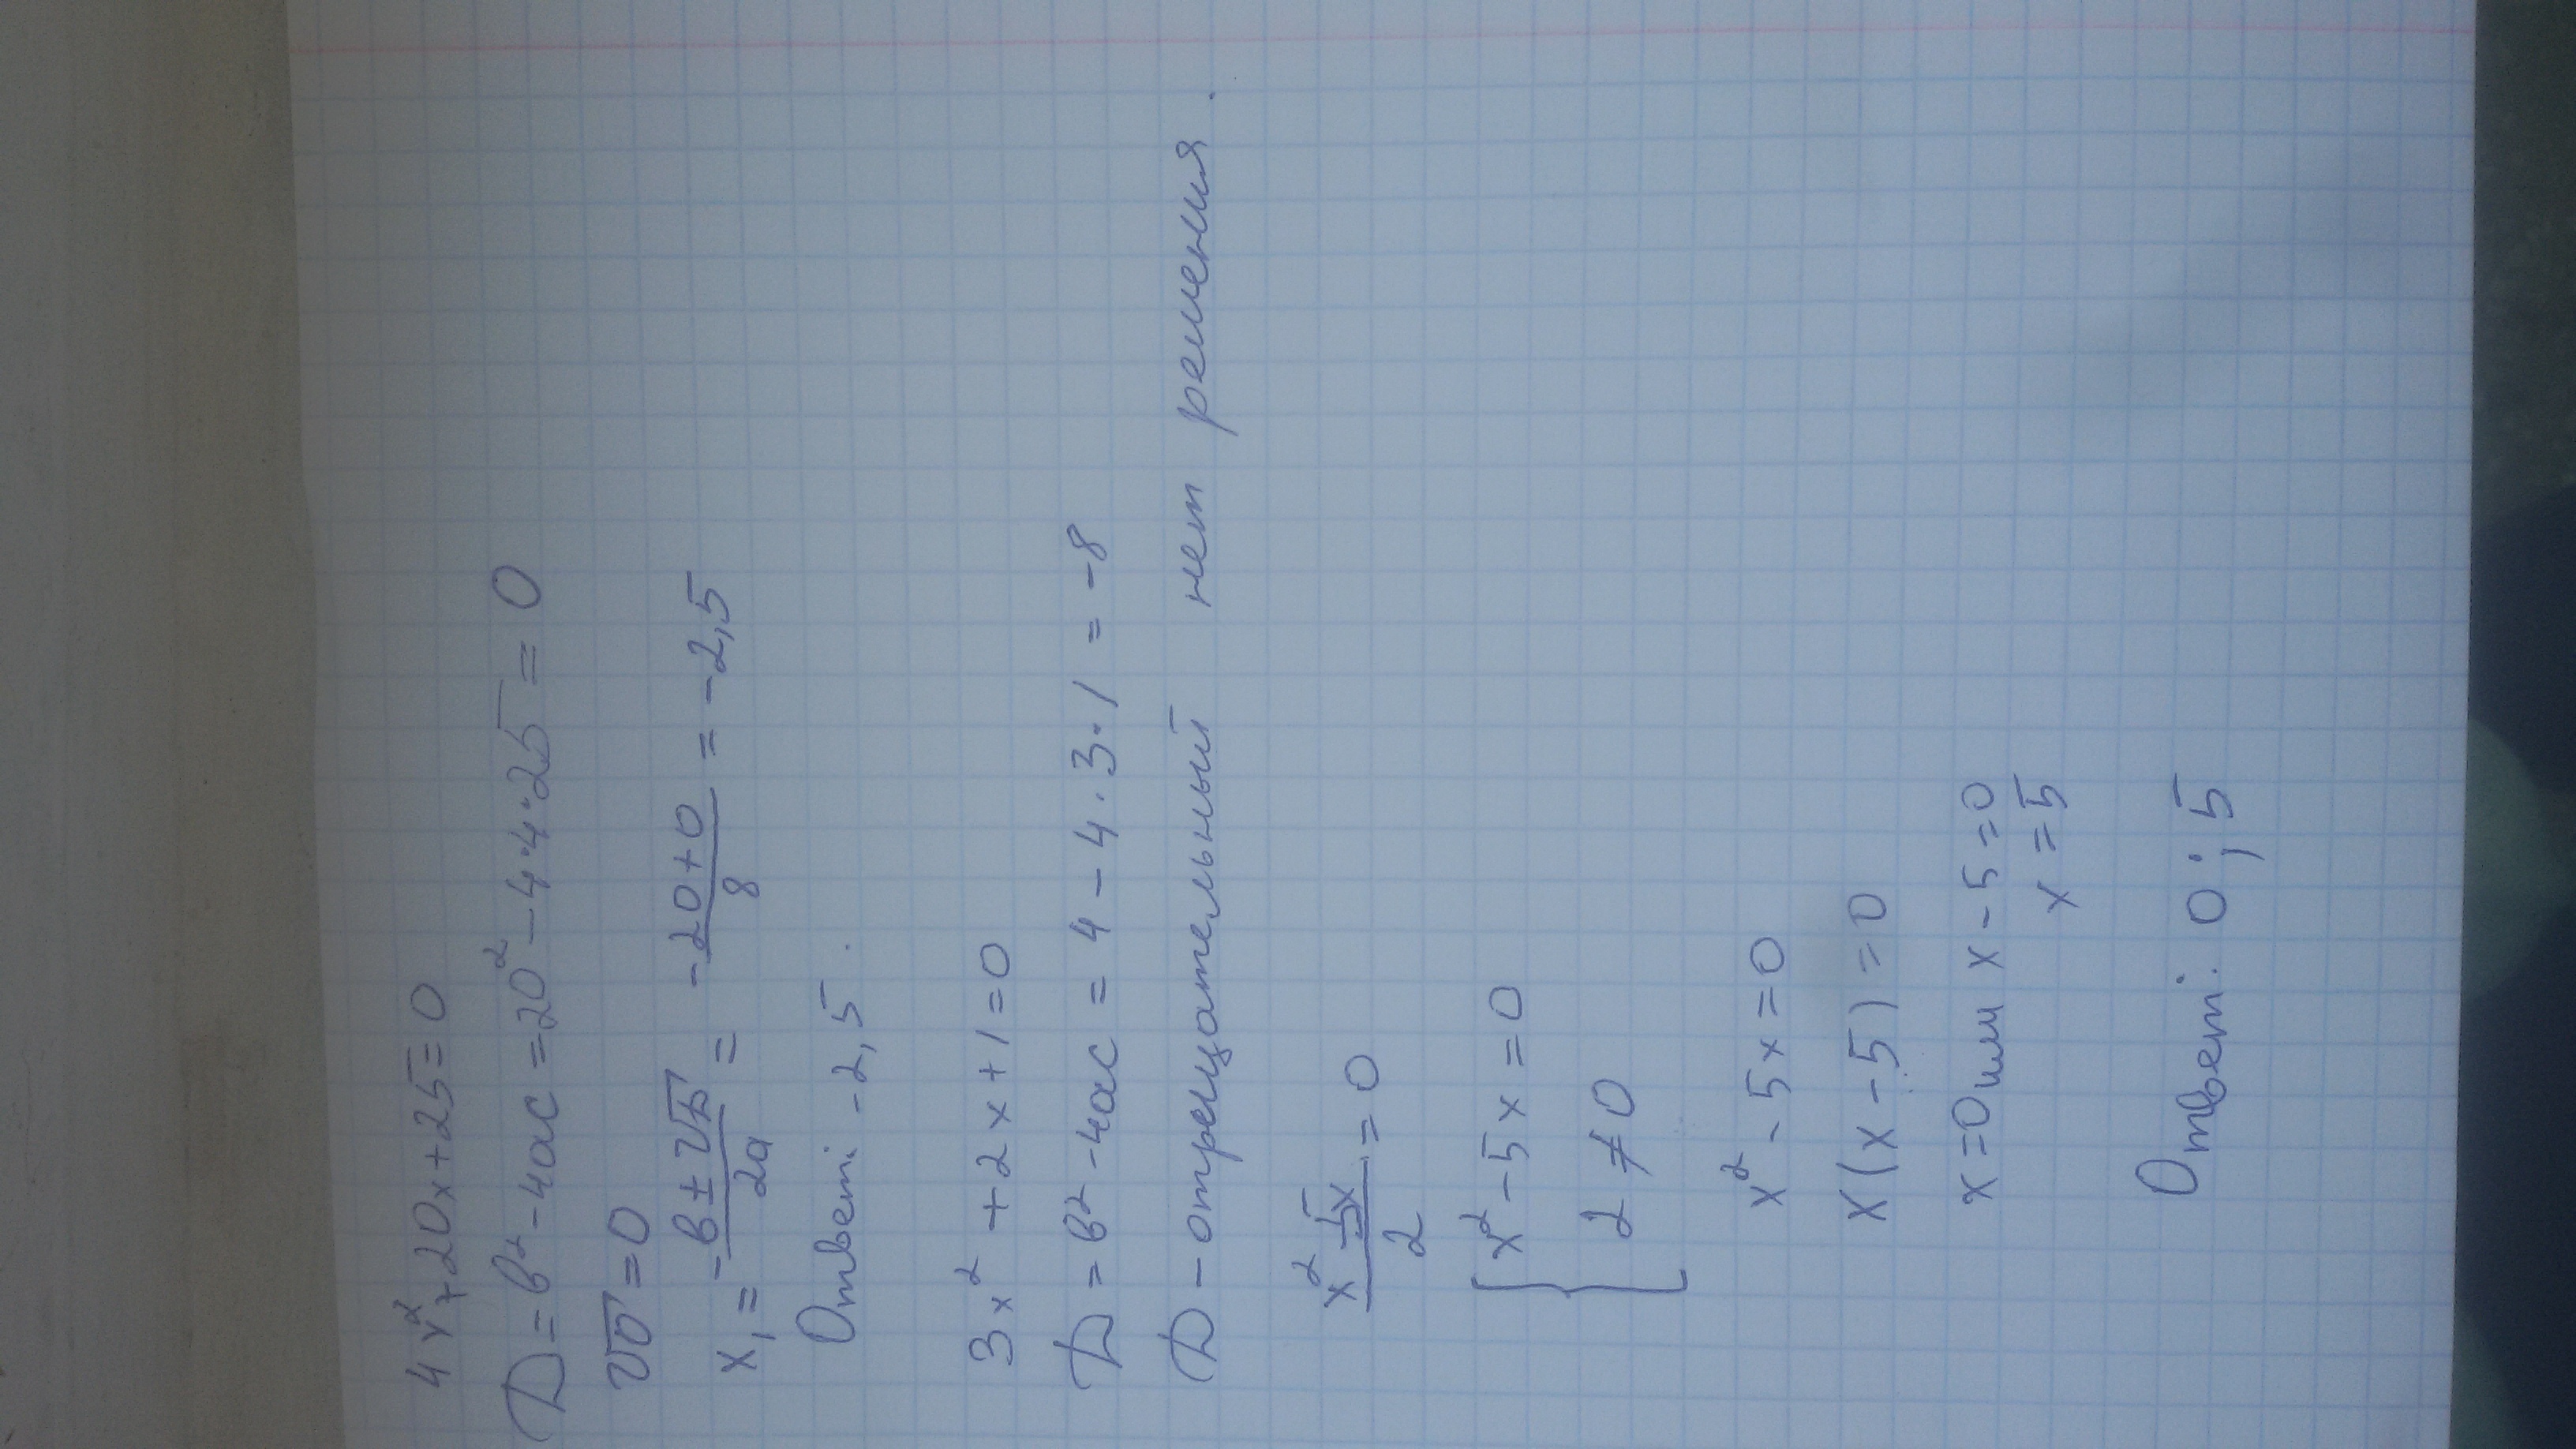 4x² + 20x + 25 = 0
D = b² - 4ac = 20² - 4·4·25 = 0
√0 = 0
x₁ = (-b ± √D)/2a = (-20 + 0)/8 = -2,5
Ответ: -2,5.
3x² + 2x + 1 = 0
D = b² - 4ac = 4 - 4·3·1 = -8
D - отрецательный нет решения.
(x² - 5x)/2 = 0
{ x² - 5x = 0
2 ≠ 0
x² - 5x = 0
x(x - 5) = 0
x = 0 или x - 5 = 0
x = 5
Ответ: 0; 5